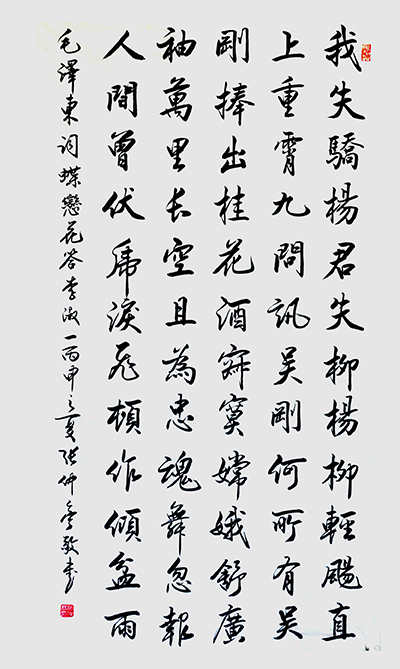 我失驕楊君失柳楊柳輕颺直
上重霄九問訊吴剛何所有吴
剛捧出桂花酒寂寞嫦娥舒廣
袖萬里长空且為忠魂舞忽報
人間曾伏虎淚飛頓作傾盆雨
毛澤東词蝶戀花答李淑一丙申之夏張仲敬书